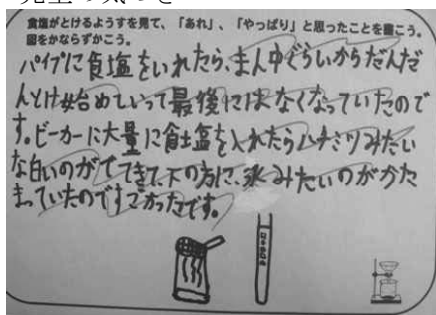 食塩がとけるようすを見て、「あれ」、「やっぱり」と思ったことを書こう。
図をかならずかこう。
パイプに食塩をいれたら、まん中ぐらいからだんだ
んとけ始めていって最後にはなくなっていたので
す。ビーカーに大量に食塩を入れたらハチミツみたい
な白いのがでてきて、下の方に、氷みたいのがかた
まっていたのですごかったです。